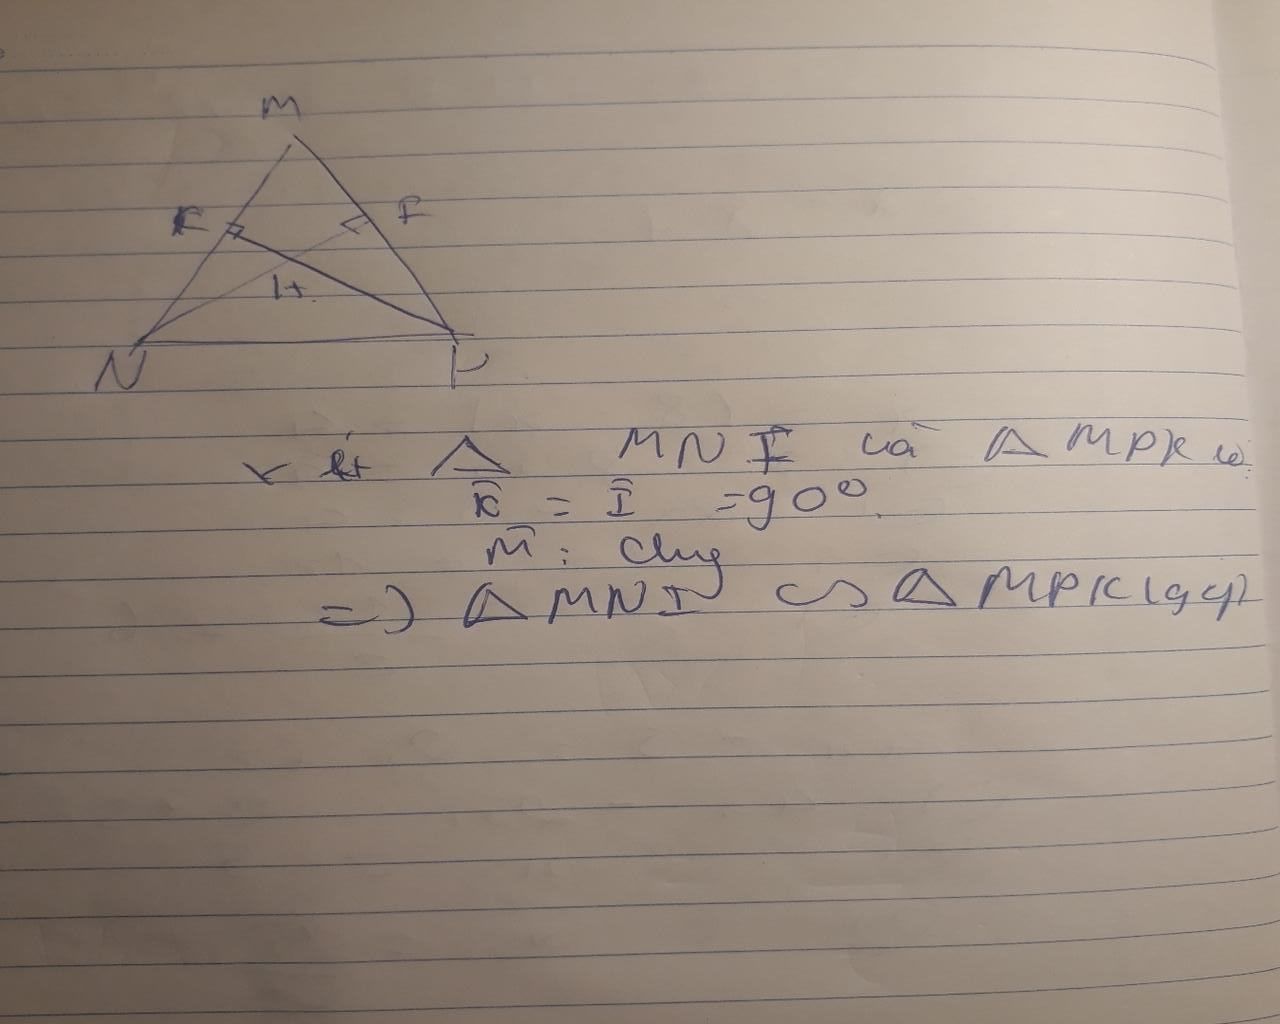 M
K I
H
N P
xét Δ MNI và Δ MPK có
K̂ = Î = 90°
M̂ : chung
=> Δ MNI ∽ Δ MPK (g g)